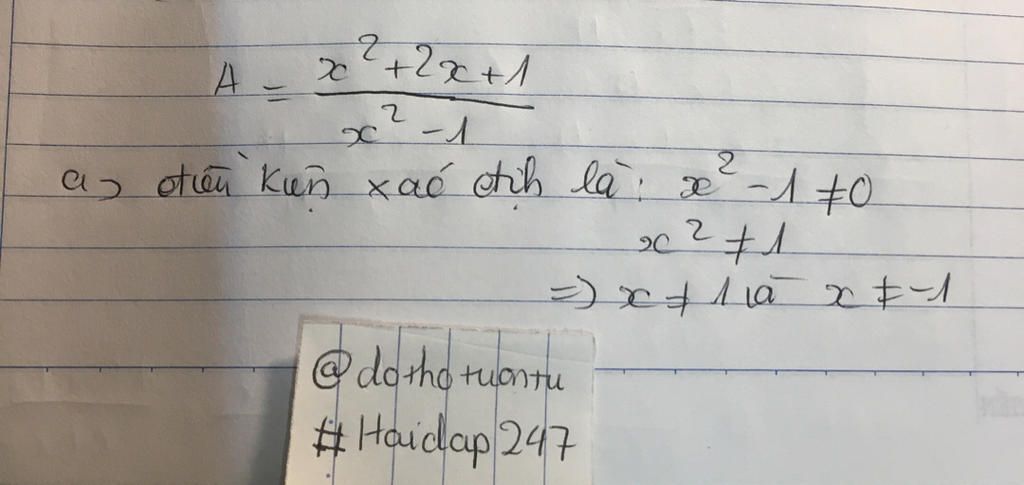 A = \frac{x^2+2x+1}{x^2-1}
a) điều kiện xác định là: x² - 1 ≠ 0
x² ≠ 1
=> x ≠ 1 và x ≠ -1
@dothotuantu
#Hoidap247